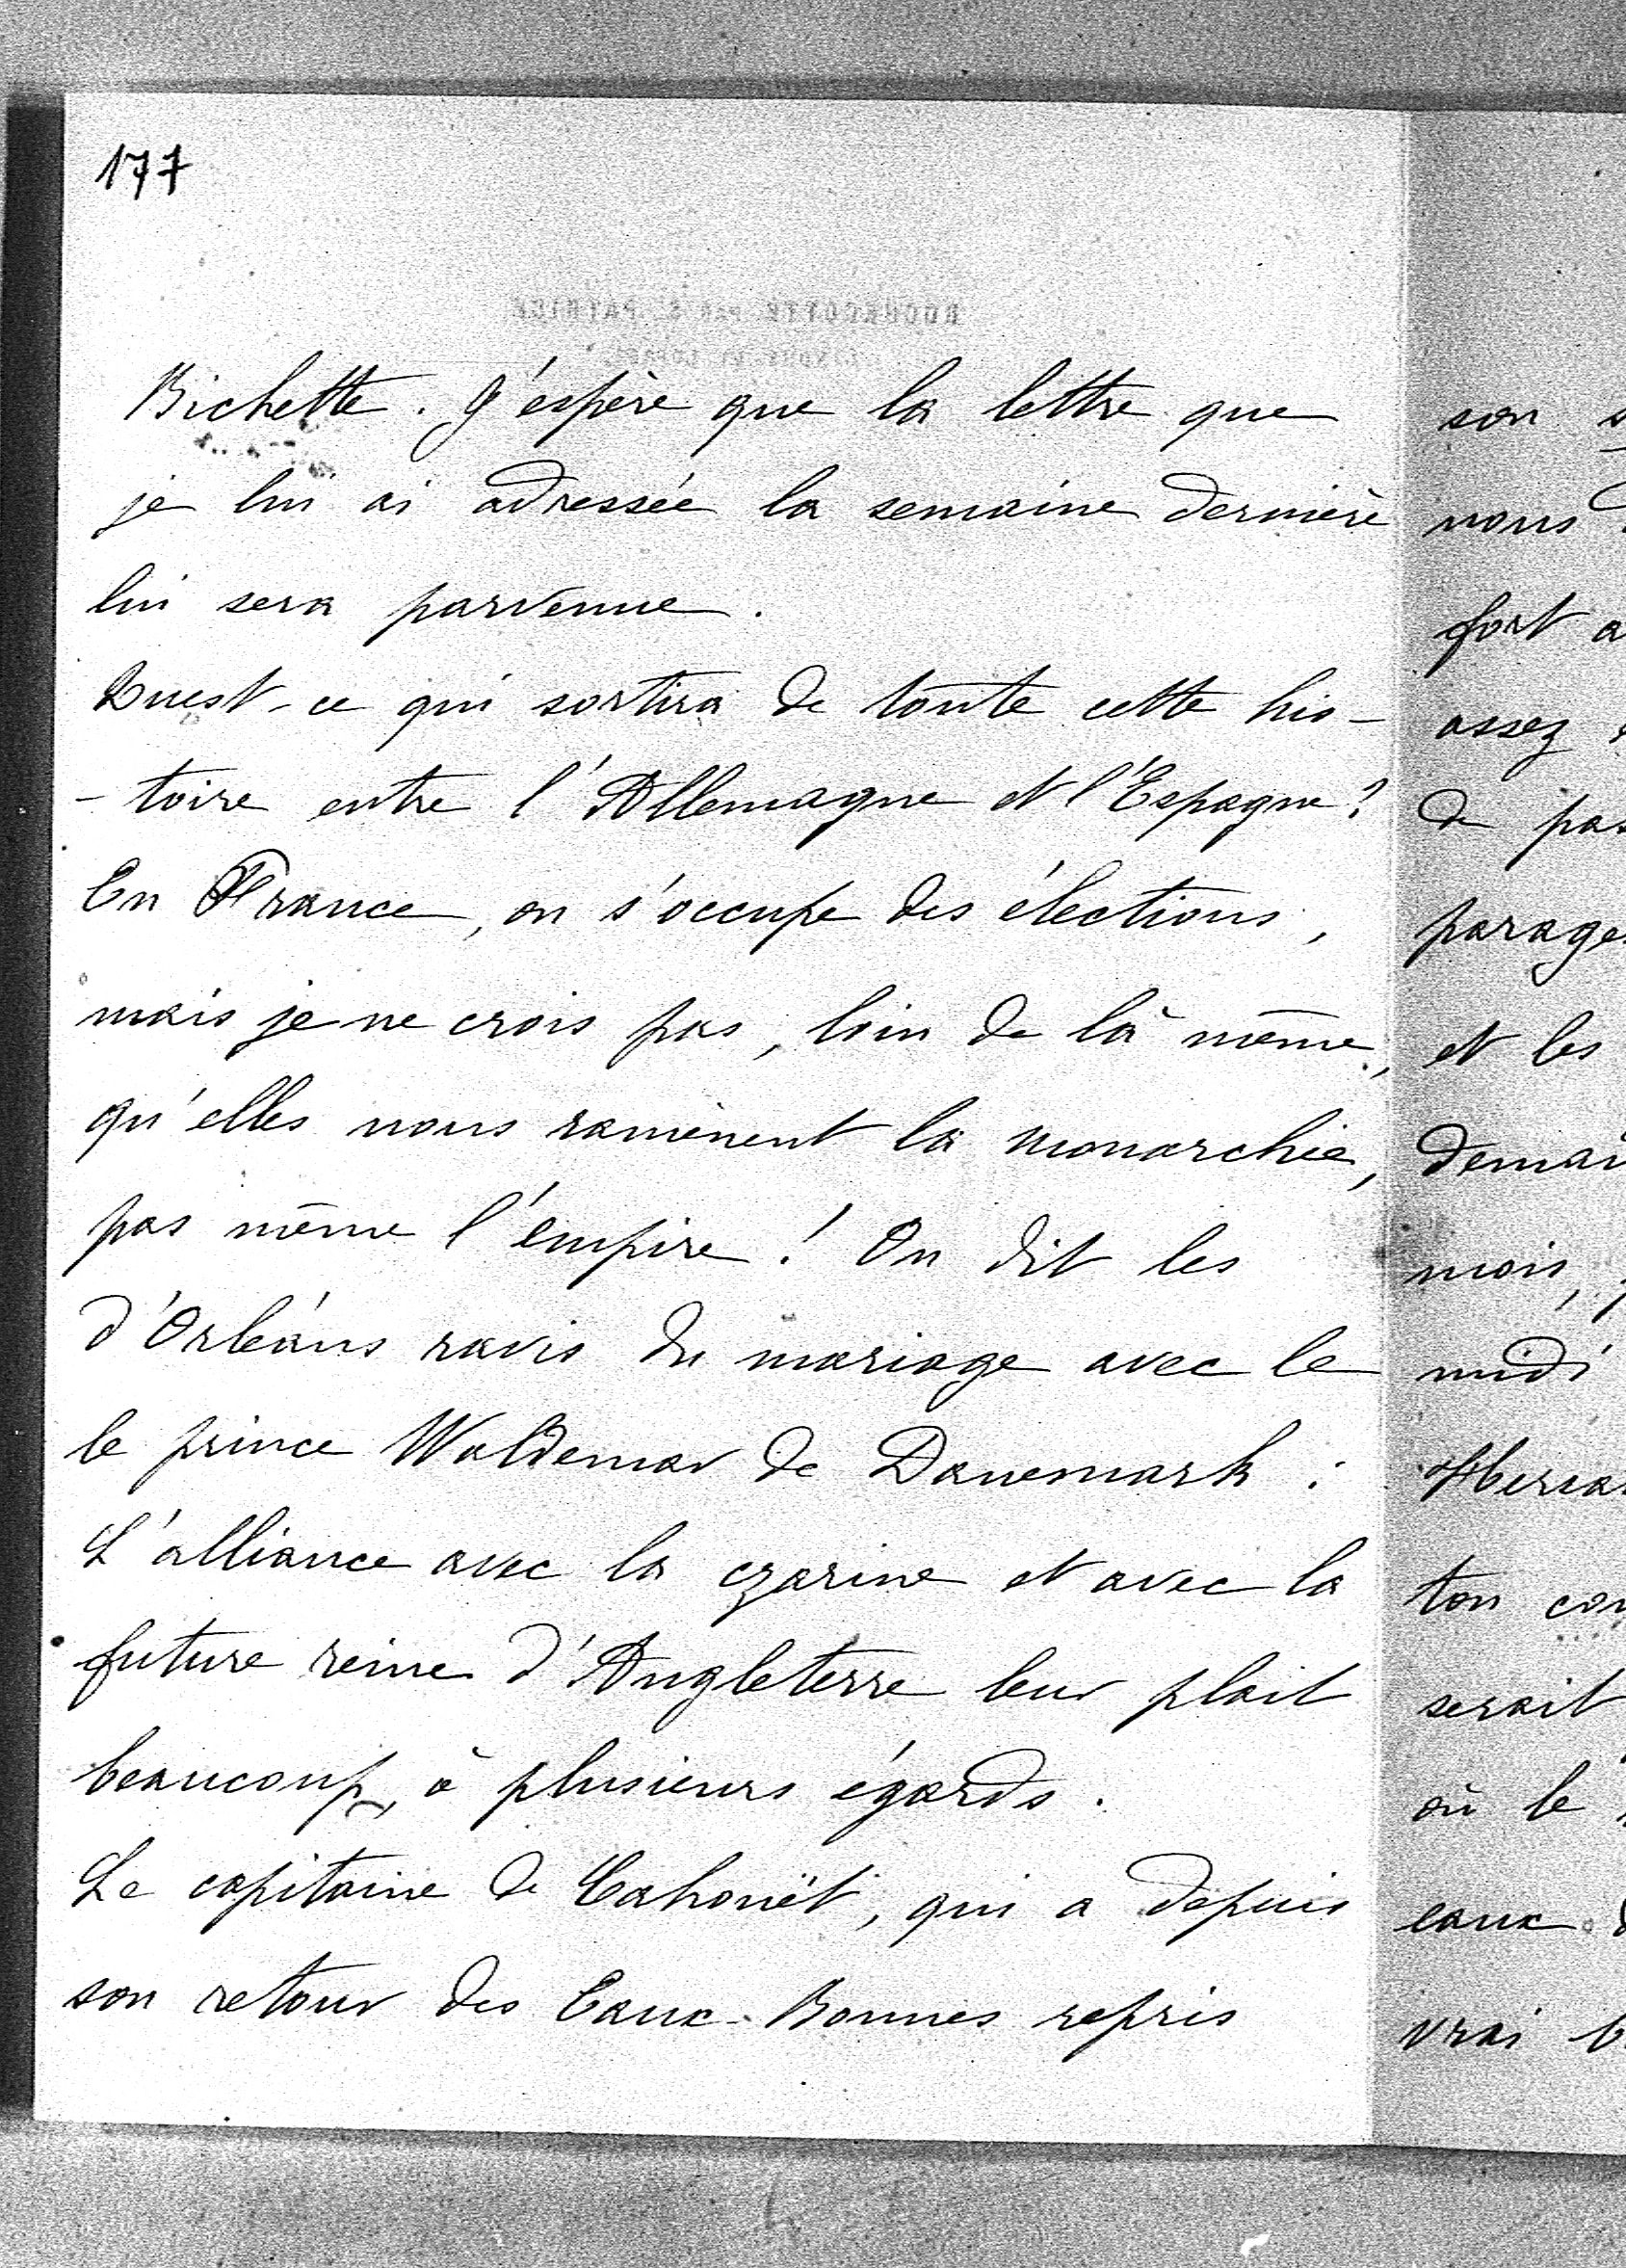 177
Bichette. J'espère que la lettre que
je lui ai adressée la semaine dernière
lui sera parvenue.
Quest-ce qui sortira de toute cette his-
-toire entre l'Allemagne et l'Espagne?
En France, on s'occupe des élections,
mais je ne crois pas, loin de là même,
qu'elles nous ramènent la monarchie,
pas même l'empire! On dit les
d'Orléans ravis du mariage avec le
le prince Waldemar de Danemark:
L'alliance avec la czarine et avec la
future reine d'Angleterre leur plait
beaucoup, à plusieurs égards.
Le capitaine de Cahouët, qui a depuis
son retour des Eaux-Bonnes repris
son
nous
fort a
assez
de pas
parages
et les
demai
mois,
midi
ton con
serait
où le
eaux
vrai b